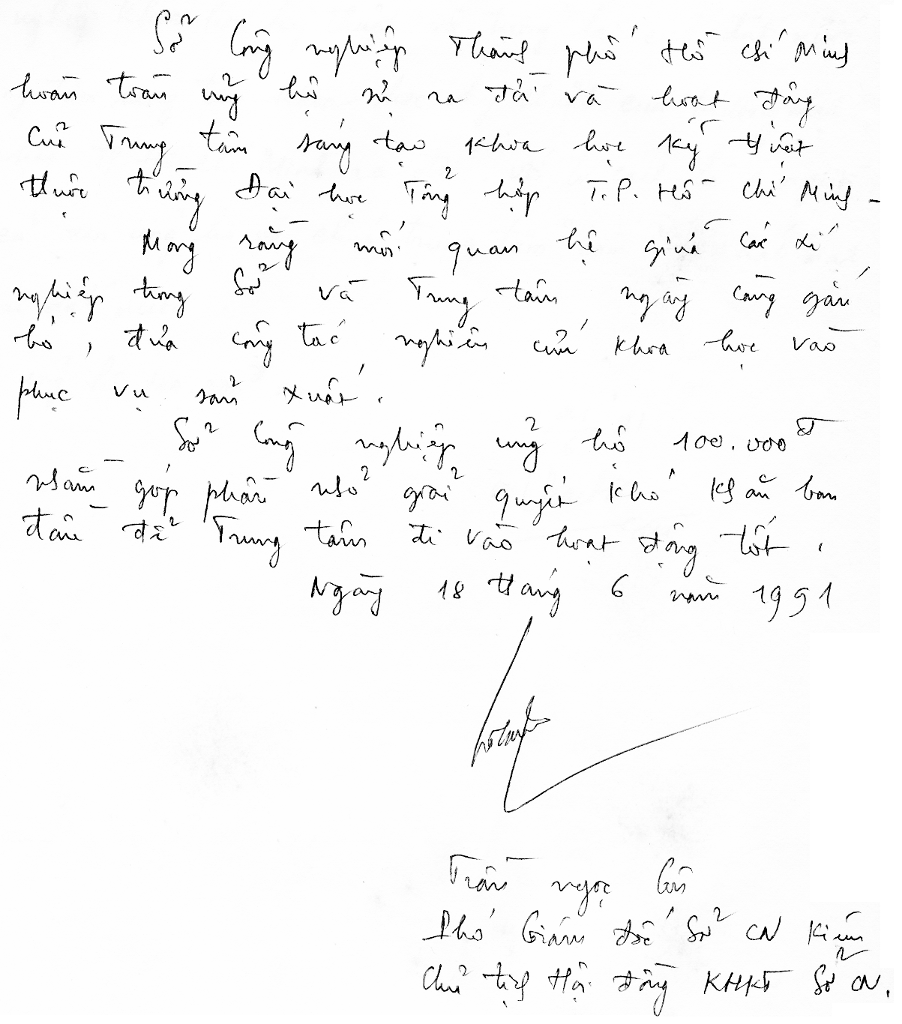 Sở Công nghiệp Thành phố Hồ Chí Minh
hoàn toàn ủng hộ sự ra đời và hoạt động
của Trung tâm sáng tạo khoa học kỹ thuật
thuộc trường Đại học Tổng hợp T.P. Hồ Chí Minh.
Mong rằng mối quan hệ giữa các xí
nghiệp trong Sở và Trung tâm ngày càng gắn
bó, đưa công tác nghiên cứu khoa học vào
phục vụ sản xuất.
Sở Công nghiệp ủng hộ 100.000đ
nhằm góp phần nhỏ giải quyết khó khăn ban
đầu để Trung tâm đi vào hoạt động tốt.
Ngày 18 tháng 6 năm 1991
Trần Ngọc
Phó Giám đốc Sở CN kiêm
Chủ tịch Hội đồng KHKT Sở CN.